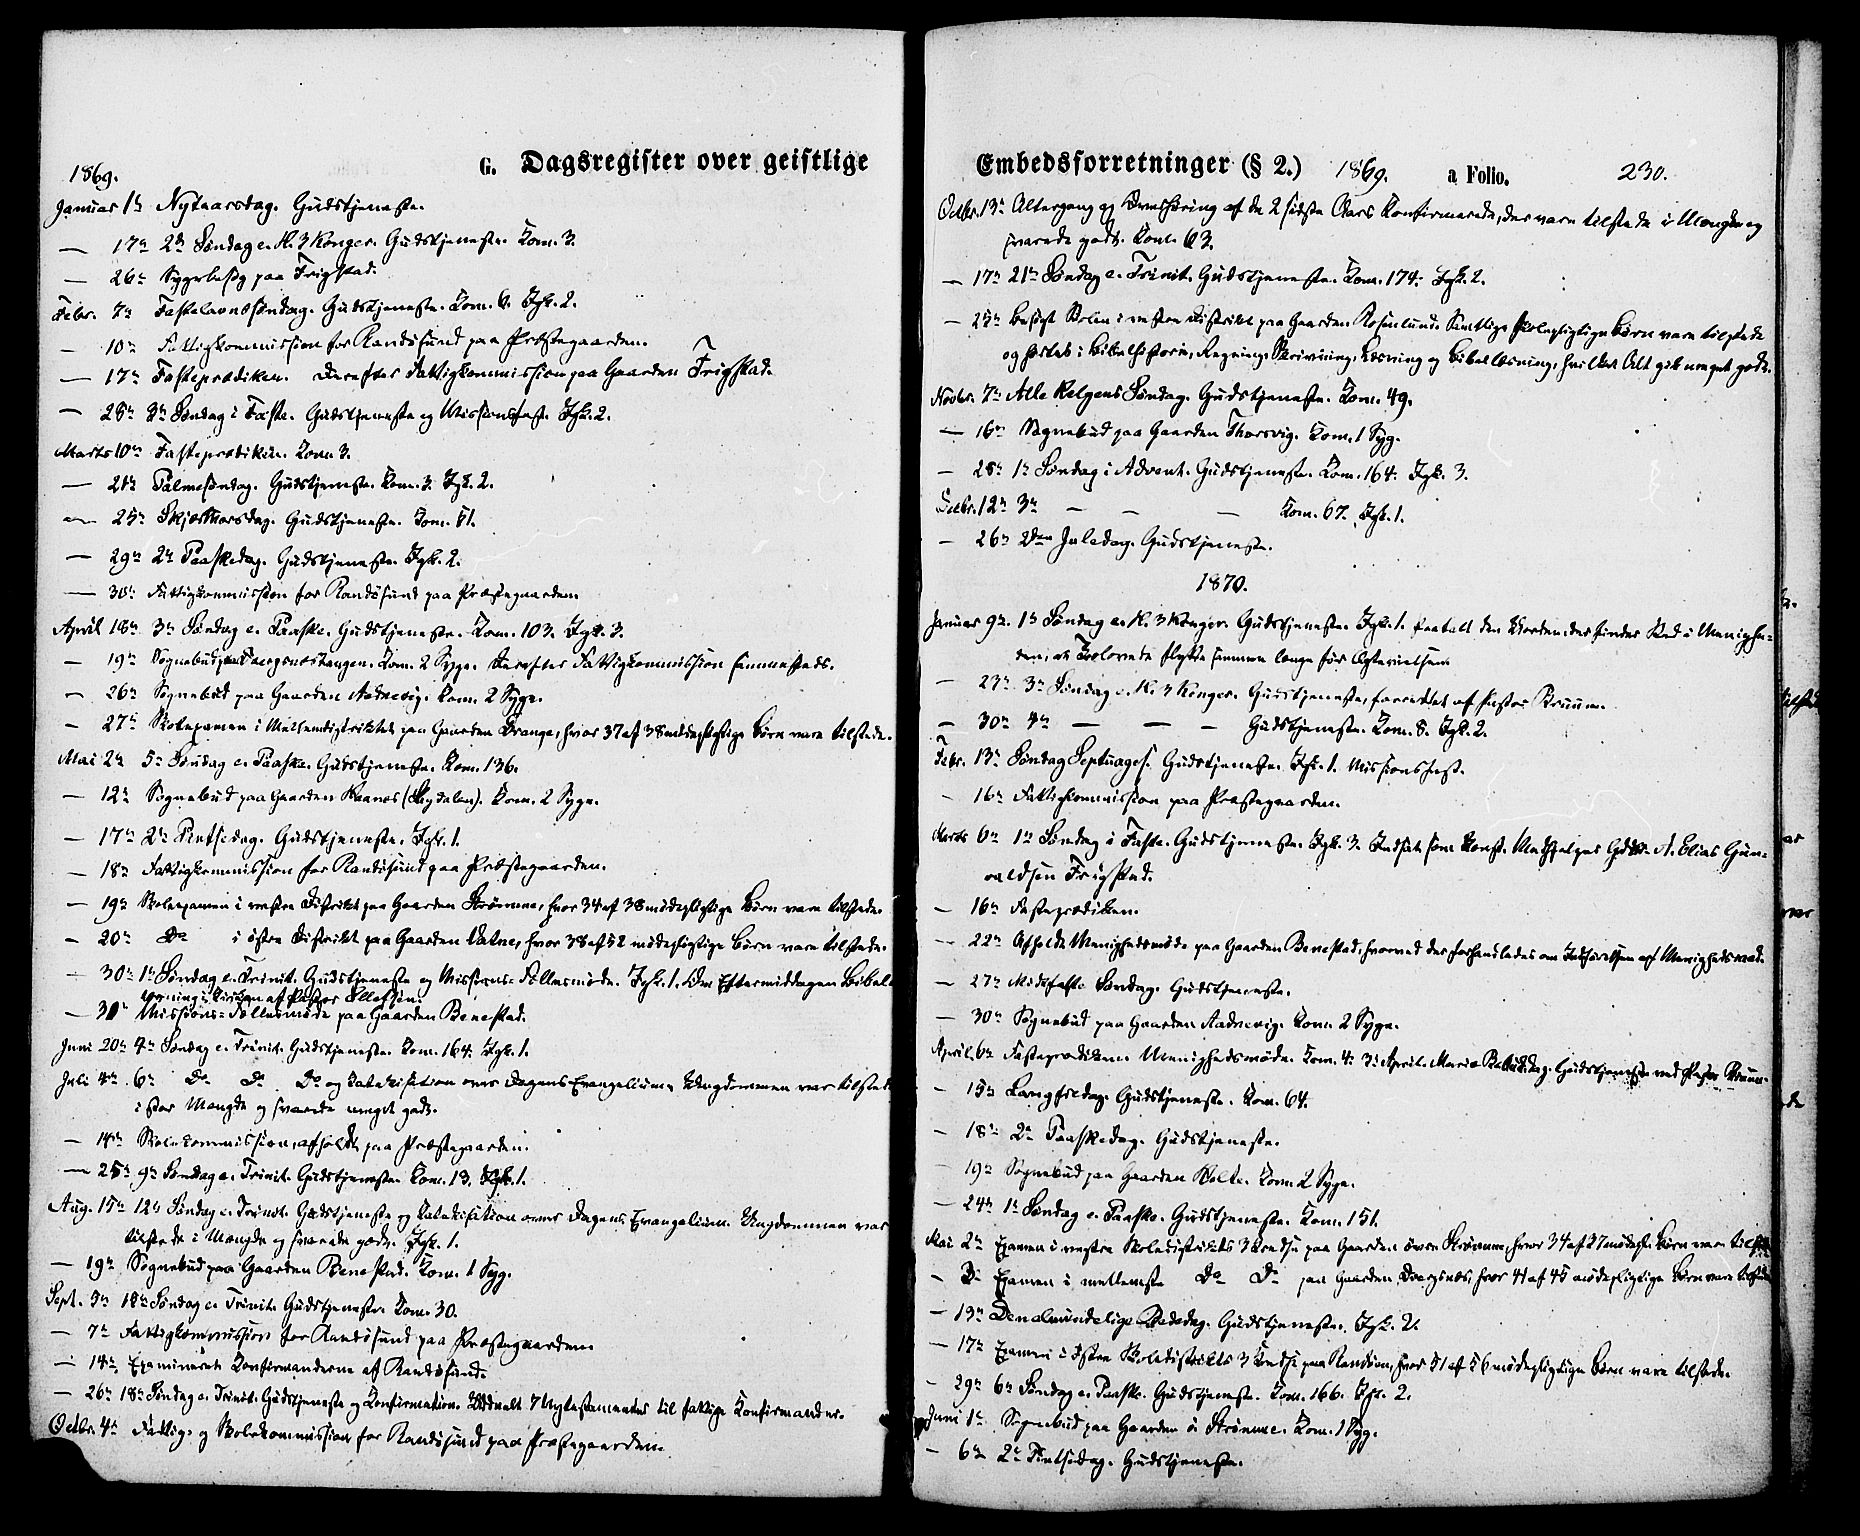 1869.
G. Dagsregister over geistlige
Januar 1ste Nytaarsdag. Gudstjeneste.
— 17de 2den Søndag e. H. 3 Konger. Gudstjeneste. Kom. 3.
— 26de Sygebesøg paa Frigstad.
Febr. 7de Fastelavnssøndag. Gudstjeneste. Kom. 6. Igk. 2.
— 10de Fattigkommission for Randøsund paa Præstegaarden.
— 17de Fasteprædiken. Derefter Fattigkommission paa Gaarden Frigstad.
— 28de 3die Søndag i Faste. Gudstjeneste og Missionsfest. Igk. 2.
Marts 10de Fasteprædiken. Kom. 3.
— 21de Palmesøndag. Gudstjeneste. Kom. 3. Igk. 2.
— 25de Skjærthorsdag. Gudstjeneste. Kom. 51.
— 29de 2den Paaskedag. Gudstjeneste. Igk. 2.
— 30te Fattigkommission for Randøsund paa Præstegaarden
April 18de 3die Søndag e. Paaske. Gudstjeneste. Kom. 103. Igk. 3.
— 19de Sognebud paa Dvergsnestangen. Kom. 2 Syge. Derefter Fattigkommission sammesteds.
— 26de Sognebud paa Gaarden Aadnevig. Kom. 2 Syge.
— 27de Skolexamen i Mellemdistriktet paa Gaarden Drange, hvor 37 af 38 mødepligtige Børn vare tilstede.
Mai 2den 5te Søndag e. Paaske. Gudstjeneste. Kom. 136.
— 12te Sognebud paa Gaarden Kaanes (Skydalen). Kom. 2 Syge.
— 17de 2den Pintsedag. Gudstjeneste. Igk. 1.
— 18de Fattigkommission for Randøsund paa Præstegaarden.
— 19de Skolexamen i vestre Distrikt paa Gaarden Strømme, hvor 34 af 38 mødepligtige Børn vare tilstede.
— 20de Do i østre Distrikt paa Gaarden Vatne, hvor 38 af 52 mødepligtige Børn vare tilstede.
— 30te 1ste Søndag e. Trinit. Gudstjeneste og Missions-Fællesmøde. Igk. 1. Om Eftermiddagen Bibel-
læsning i Kirken af Pastor Ellefsen.
— 31te Missions-Fællesmøde paa Gaarden Benestad.
Juni 20de 4de Søndag e. Trinit. Gudstjeneste. Kom. 164. Igk. 1.
Juli 4de 6te Do Do Do og Katekisation over Dagens Evangelium. Ungdommen var tilstede
i stor Mængde og svarede meget godt.
— 14de Skolekommission, afholdt paa Præstegaarden.
— 25de 9de Søndag e. Trinit. Gudstjeneste. Kom. 13. Igk. 1.
Aug. 15de 12te Søndag e. Trinit. Gudstjeneste og Katekisation over Dagens Evangelium. Ungdommen var
tilstede i Mængde og svarede godt. Igk. 1.
— 19de Sognebud paa Gaarden Benestad. Kom. 1 Syg.
Sept. 5te 15de Søndag e. Trinit. Gudstjeneste. Kom. 30.
— 7de Fattigkommission for Randøsund paa Præstegaarden.
— 14de Examineret Konfirmanderne af Randøsund.
— 26de 18de Søndag e. Trinit. Gudstjeneste og Konfirmation. Uddeelt 7 Nytestamenter til fattige Konfirmander.
Octbr. 4de Fattig- og Skolekommission for Randøsund paa Præstegaarden.
Embedsforretninger (§ 2.) 1869. a Folio. 230.
Octbr. 13de Altergang og Overhøring af de 2 sidste Aars Konfirmerede, der vare tilstede i Mængde og
svarede godt. Kom. 63.
— 17de 21de Søndag e. Trinit. Gudstjeneste. Kom. 174. Igk. 2.
— 25de Besøgt Skolen i vestre Distrikt paa Gaarden Rosenlund. Samtlige skolepligtige Børn vare tilstede
og hørtes i Bibelhistorie, Regning, Skrivning, Læsning og Bibellæsning, hvilket Alt gik meget godt.
Novbr. 7de Alle Helgens Søndag. Gudstjeneste. Kom. 49.
— 16de Sognebud paa Gaarden Thorsvig. Kom. 1 Syg.
— 28de 1ste Søndag i Advent. Gudstjeneste. Kom. 164. Igk. 3.
Decbr. 12te 3die — — — Kom. 67. Igk. 1.
— 26de 2den Juledag. Gudstjeneste.
1870.
Januar 9de 1ste Søndag e. H. 3 Konger. Gudstjeneste. Igk. 1. Paatalt den Uorden, der finder Sted i Menighe-
den, at Trolovede flytte sammen længe før Ægtevielsen.
— 23de 3die Søndag e. H. 3 Konger. Gudstjeneste, forrettet af Pastor Bruun.
— 30te 4de — — — Gudstjeneste. Kom. 8. Igk. 2.
Febr. 13de Søndag Septuages. Gudstjeneste. Igk. 1. Missionsfest.
— 16de Fattigkommission paa Præstegaarden.
Marts 6te 1ste Søndag i Faste. Gudstjeneste. Igk. 3. Indsat som konst. Medhjælper Gdbr. A. Elias Gun-
valdsen Frigstad.
— 16de Fasteprædiken.
— 22de Afholdt Menighedsmøde paa Gaarden Benestad, hvorved der forhandledes om Indførelsen af Menighedsraad.
— 27de Midfaste Søndag. Gudstjeneste.
— 30te Sognebud paa Gaarden Aadnevig. Kom. 2 Syge.
April 6te Fasteprædiken. Menighedsmøde. Kom. 4. 3die April. Mariæ Bebudelsesdag. Gudstjeneste ved Pastor Bruun.
— 15de Langfredag. Gudstjeneste. Kom. 64.
— 18de 2den Paaskedag. Gudstjeneste.
— 19de Sognebud paa Gaarden Holte. Kom. 2 Syge.
— 24de 1ste Søndag e. Paaske. Gudstjeneste. Kom. 151.
Mai 2den Examen i vestre Skoledistrikts 3 Kredse paa Gaarden øvre Strømme, hvor 34 af 37 mødepl. Børn vare tilstede
— 3die Examen i mellemste Do Do paa Gaarden Dvergsnæs, hvor 41 af 45 mødepligtige Børn vare tilstede
— 13de Den almindelige Bededag. Gudstjeneste. Igk. 2.
— 17de Examen i Østre Skoledistrikts 3 Kredse paa Randøen, hvor 51 af 56 mødepligtige Børn vare tilstede.
— 29de 6te Søndag e. Paaske. Gudstjeneste. Kom. 166. Igk. 2.
Juni 1ste Sognebud paa Gaarden ø. Strømme. Kom. 1 Syg.
— 6te 2den Pintsedag. Gudstjeneste.